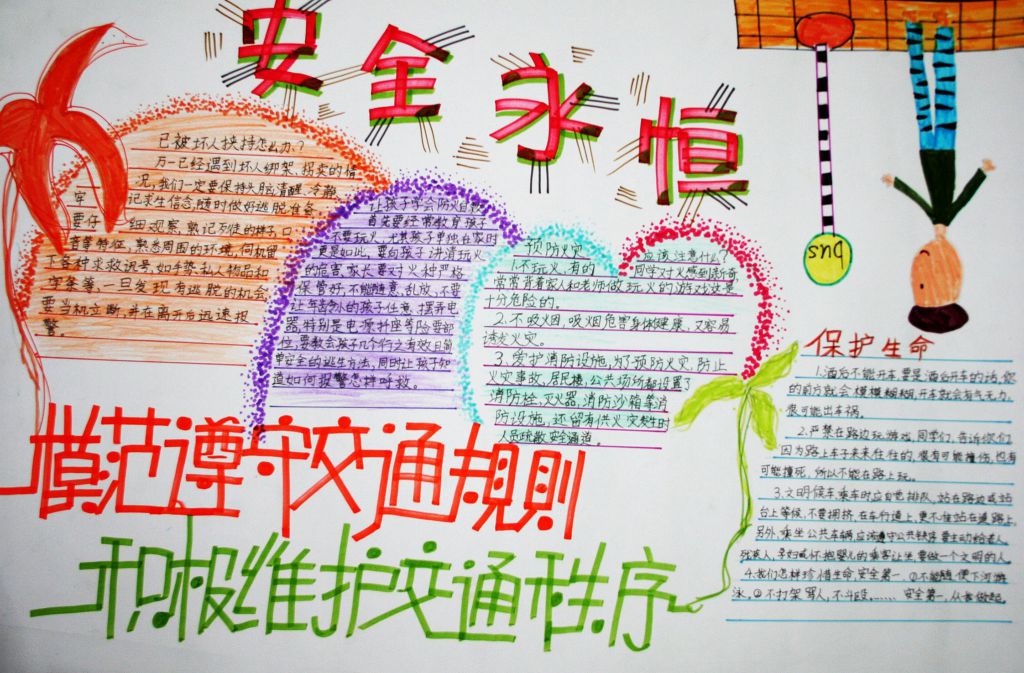 安全永恒
已被坏人挟持怎么办?
万一已经遇到坏人绑架、拐卖的情
况,我们一定要保持头脑清醒、冷静,
牢记求生信念,随时做好逃脱准备。
要仔细观察,熟记歹徒的样子,口
音等特征,熟悉周围的环境,伺机留
下各种求救讯号,如手势、私人物品和
字条等,一旦发现有逃脱的机会,
要当机立断,并在离开后迅速报
警。
让孩子学会防火自救
首先要经常教育孩子
不要玩火,尤其孩子单独在家时
更是如此,要向孩子讲清玩火
的危害,家长要对火种严格
保管好,不能随意乱放,不要
让年幼的孩子任意摆弄电
器,特别是电源插座等险要部
位,要教会孩子几个行之有效且简
单安全的逃生方法,同时让孩子知
道如何报警怎样呼救。
预防火灾应该注意什么?
1.不玩火,有的同学对火感到新奇
常常背着家人和老师做玩火的游戏这是
十分危险的。
2.不吸烟,吸烟危害身体健康,又容易
诱发火灾。
3.爱护消防设施,为了预防火灾,防止
火灾事故,居民楼,公共场所都设置了
消防栓,灭火器,消防沙箱等消
防设施,还留有供火灾发生时
人员疏散安全通道。
bus
保护生命
1.酒后不能开车,要是酒后开车的话,您
的前方就会模模糊糊,开车就会有气无力,
很可能出车祸。
2.严禁在路边玩游戏,同学们,告诉你们
因为路上车子来来往往的,很有可能撞伤,也有
可能撞死,所以不能在路上玩。
3.文明候车,乘车时应自觉排队,站在路边或站
台上等候,不要拥挤,在车行道上,更不准站在道路上。
另外,乘坐公共车辆,应该遵守公共秩序,要主动给老人,
残疾人,孕妇或怀抱婴儿的乘客让坐,要做一个文明的人。
4.我们怎样珍惜生命,安全第一,①不能随便下河游
泳,②不打架骂人,不斗殴,……安全第一,从我做起。
模范遵守交通规则
积极维护交通秩序